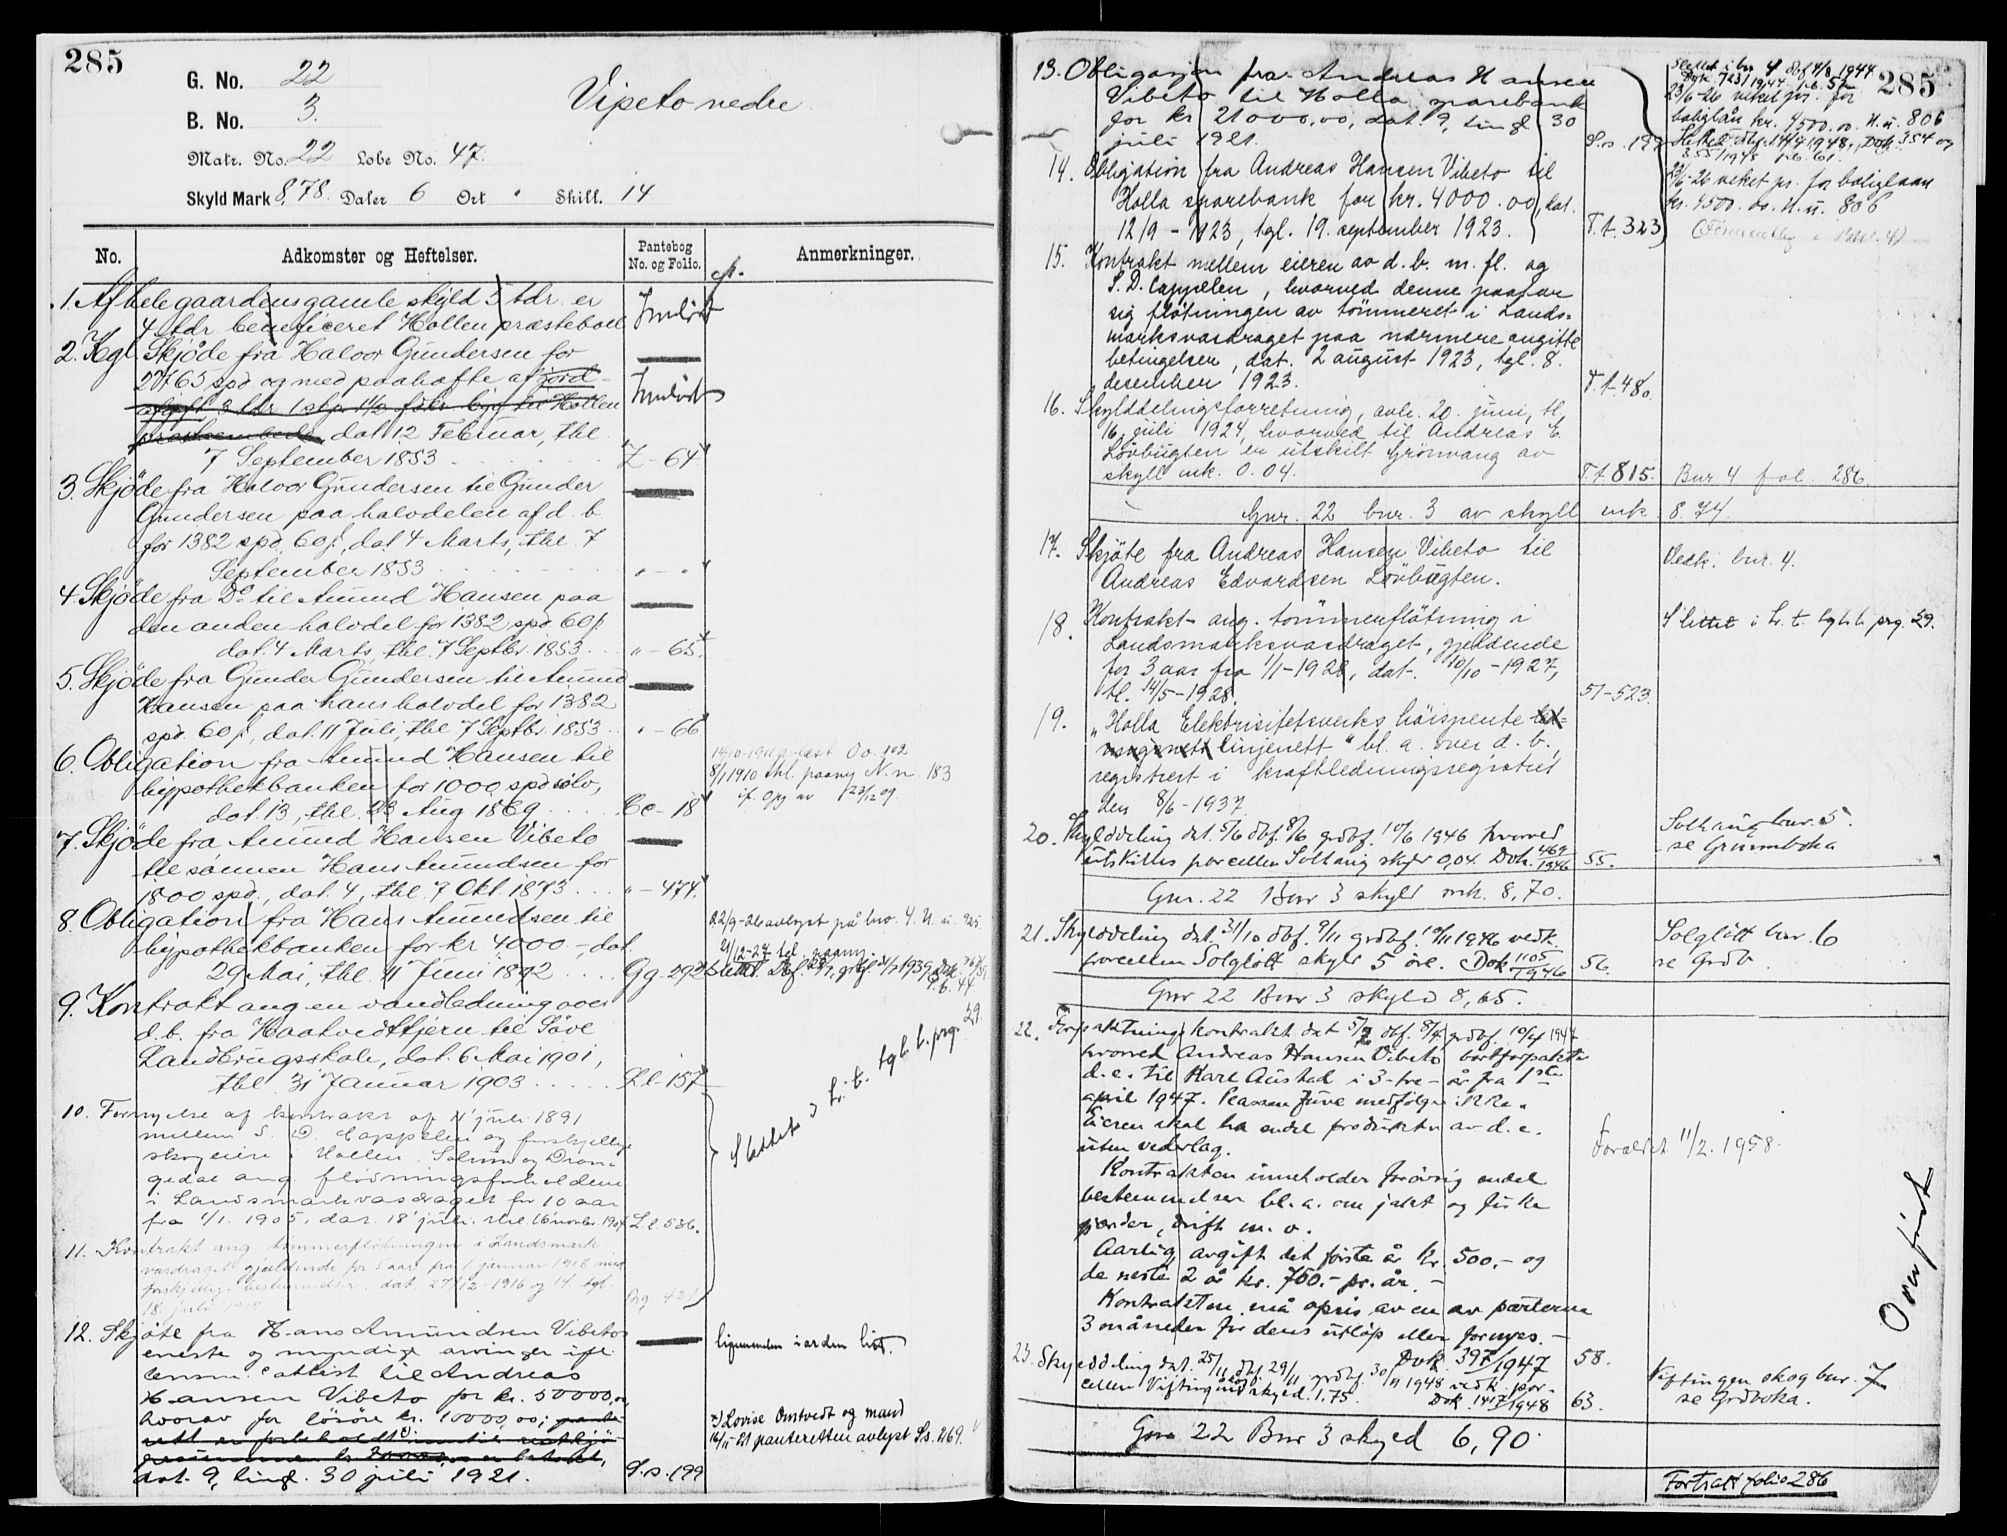 285
G. No. 22
B. No. 3.
Vipeto nedre
Matr. No. 22 Løbe No. 47.
Skyld Mark 8.78. Daler 6 Ort " Skill. 14
No.
Adkomster og Heftelser.
Pantebog
No. og Folio.
Anmerkninger.
1. Af hele gaardens gamle skyld 5 tdr. er
4 tdr. beneficeret Hollen præstebol
Indløst
2. Kgl. Skjøde fra Halvor Gundersen for
2765 spd og med paahæfte af jord-
Indløst
dat 12 Februar, thl.
7 September 1853 Z - 64
3. Skjøde fra Halvor Gundersen til Gunder
Gundersen paa halvdelen af d. b.
for 1382 spd. 60 s, dat 4 Marts, thl. 7
September 1853 " - "
4. Skjøde fra Do til Amund Hansen paa
den anden halvdel for 1382 spd 60 s
dat. 4 Marts, thl. 7 Septbr. 1853 " - 65.
5. Skjøde fra Gunder Gundersen til Amund
Hansen paa hans halvdel for 1382
spd. 60 s, dat. 11 Juli, thl. 7 Septbr. 1853 " - 66
6. Obligation fra Amund Hansen til
hypothekbanken for 1000 spd sølv,
dat. 13, thl. 23 Aug 1869 Cc - 18
8/1 1910 thl. paany N. n. 183
7. Skjøde fra Amund Hansen Vibeto
til sønnen Hans Amundsen for
1800 spd., dat. 4, thl. 7 Okt. 1873 " - 474.
8. Obligation fra Hans Amundsen til
hypothekbanken for kr 4000.-, dat.
29 Mai, thl. 11 Juni 1892 Gg. 292
22/9-26 avlyst på bnr. 4. U. u. 925
21/12-27 tgl. paany
9. Kontrakt ang en vandledning over
d. b. fra Haatvedttjern til Søve
Landbrugsskole, dat. 6 Mai 1901,
thl. 31 Januar 1903 Ll. 157
10. Fornyelse af kontrakt af 11 juli 1891
mellem S. D. Cappelen og forskjellige
skogeiere i Hollen, Solum og Dran-
gedal ang. flødningsforholdene
i Landsmarkvasdraget for 10 aar
fra 1/1. 1905, dat. 18 juli, thl. 16 novbr. 1904 Ll. 536.
Slettet i h. t. tgl. l. prg. 29.
11. Kontrakt ang tømmerflødningen i Landsmark
vasdraget gjældende for 5 aar fra 1 januar 1918 med
forskjellige bestemmelser, dat. 27/12-1916 og 14 tgl.
18. juli
12. Skjøte fra Hans Amundsen Vibetos
eneste og myndige arvinger ifl.
attest til Andreas
Hansen Vibeto for kr. 50000,00
hvorav for løsøre kr. 10000,00;
dat. 9, tingl. 30 juli 1921. S.s. 199
Lovise Omtvedt og mand
panteretten avlyst S.s. 269.
285
13. Obligasjon fra Andreas Hansen
Vibeto til Holla sparebank
for kr 21000.00, dat. 9, tingl 30
juli 1921. S.s. 199
23/6-26 veket pr. for
boliglån kr. 4500.00. U. u. 806
14. Obligation fra Andreas Hansen Vibeto til
Holla sparebank for kr. 4000.00, dat.
12/9 - 1923, tgl. 19. september 1923. T.t. 323
23/6-26 veket pr. for boliglaan
kr. 4500.00. U. u. 806
15. Kontrakt mellem eieren av d. br. m. fl. og
S. D. Cappelen, hvorved denne paatar
sig fløtningen av tømmeret i Lands-
marksvasdraget paa nærmere angitte
betingelser, dat. 2 august 1923, tgl. 8.
desember 1923. T.t. 480
16. Skylddelingsforretning, avh. 20. juni, tl.
16. juli 1924, hvorved til Andreas E.
Lövbugten er utskilt Grönvang av
skyll mk. 0.04. T.t. 815. Bnr 4 fol. 286
Gnr. 22 bnr. 3 av skyll mk 8.74.
17. Skjöte fra Andreas Hansen Vibeto til
Andreas Edvardsen Lövbugten.
Vedk. bnr. 4.
18. Kontrakt ang. tömmerflötning i
Landsmarksvasdraget, gjeldende
for 3 aar fra 1/1-1928, dat. 10/10-1927,
tl. 14/5-1928. 51-523.
Slettet i h. t. tgl. l. prg. 29.
19. "Holla Elektrisitetsverks höispente
linjenett" bl. a. over d. b.,
registrert i kraftledningsregistret
den 8/6-1937
20. Skylddeling dat. 5/6 dbf. 8/6 grdbf. 10/6 1946 hvorved
utskilles parcellen Solhaug skyld 0,04. Dok. 469/1946 55.
Solhaug bnr. 5.
se Grunnboka
Gnr. 22 Bnr 3 skyld mrk. 8,70.
21. Skylddeling dat. 31/10 dbf. 9/11 grdbf. 12/11 1946 vedk.
parcellen Solglött skyld 5 öre. Dok 1105/1946 56.
Solglött bnr. 6
se Grdb.
Gnr 22 Bnr 3 skyld 8,65.
22. Forpaktningskontrakt dat. dbf. 8/4 grdbf. 10/4 1947
hvorved Andreas Hansen Vibeto bortforpakter
d. e. til Karl Austad i 3-tre- år fra 1ste
april 1947.
Eieren skal ha endel produkter av d. e.
uten vederlag.
Kontrakten inneholder forövrig endel
bestemmelser bl. a. om jakt og fiske
gjerder, drift m. v.
Aarlig avgift det förste år kr. 500,- og
de neste 2 år kr. 750.- pr. år. -
Kontrakten må opsis av en av parterne
3 måneder för dens utlöp ellers fornyes. -
Dok. 397/1947 58.
Foreldet 11/2. 1958.
23. Skylddeling dat. 25/11 dbf. 29/11 grdbf. 30/11 1948 vedk. par-
cellen Viftingen skog skyld. 1.75. Dok 1417/1948 63.
Viftingen skog bnr. 7
se Grdboka.
Gnr 22 Bnr 3 skyld 6,90
Overfört
Fortsatt folio 286